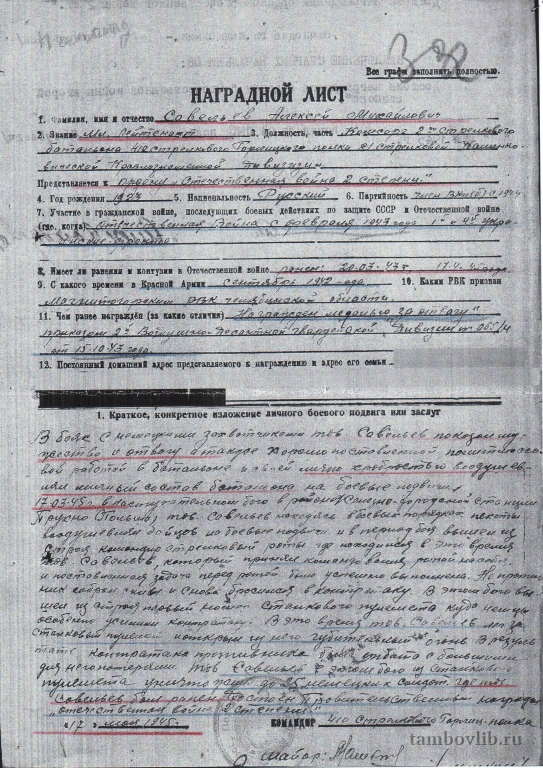 Все графы заполнить полностью.
НАГРАДНОЙ ЛИСТ
1. Фамилия, имя и отчество Савельев Алексей Михайлович
2. Звание Мл. лейтенант 3. Должность, часть 2го стрелкового
батальона 410 стрелкового Горлицкого полка 81 стрелковой
Краснознаменной дивизии
Представляется к ордену „Отечественная война 2 степени"
4. Год рождения 1923 5. Национальность Русский 6. Партийность член ВКП(б) с 1944
7. Участие в гражданской войне, последующих боевых действиях по защите СССР и Отечественной войне
(где, когда) Отечественная война с февраля 1943 года 1й и 4й Укра-
инские фронты
8. Имеет ли ранения и контузии в Отечественной войне ранен: 20.03.43г.
9. С какого времени в Красной Армии сентябрь 1942 года 10. Каким РВК призван
Магнитогорским РВК Челябинской области
11. Чем ранее награждён (за какие отличия) Награжден медалью „За отвагу"
приказом 2й Воздушно-десантной гвардейской дивизии
от 15.10.43 года.
12. Постоянный домашний адрес представляемого к награждению и адрес его семьи
1. Краткое, конкретное изложение личного боевого подвига или заслуг
В боях с немецкими захватчиками тов. Савельев показал му-
жество и отвагу а также хорошо поставленной
вой работой в батальоне и своей личной храбростью воодушев-
лял личный состав батальона на боевые подвиги.
17.03.45г. в наступательном бою в районе станции
(Польша) тов. Савельев находясь в боевых порядках пехоты
воодушевлял бойцов на боевые подвиги и в период боя вышел из
строя командир стрелковой роты где находился в это время
тов Савельев, который принял командование ротой на себя
и поставленная задача перед ротой была успешно выполнена. Но против-
ник собрал силы и снова бросился в контратаку. В этом бою вы-
шел из строя первый номер станкового пулемета куда немцы
особенно усилили контратаку. В это время тов. Савельев лег за
станковый пулемет и открыл из него губительный огонь. В резуль-
тате контратака противника была отбита с большими
для него потерями. Тов Савельев в этом бою из станкового
пулемета уничтожил до 25 немецких солдат, где тов
Савельев был ранен. Достоин правительственной награды
„Отечественная война 2 степени"
„17" мая 1945 г. КОМАНДИР 410 Стрелкового Горлиц. полка
майор
tambovlib.ru